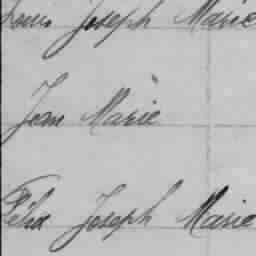 Louis Joseph Marie
Jean Marie
Félix Joseph Marie